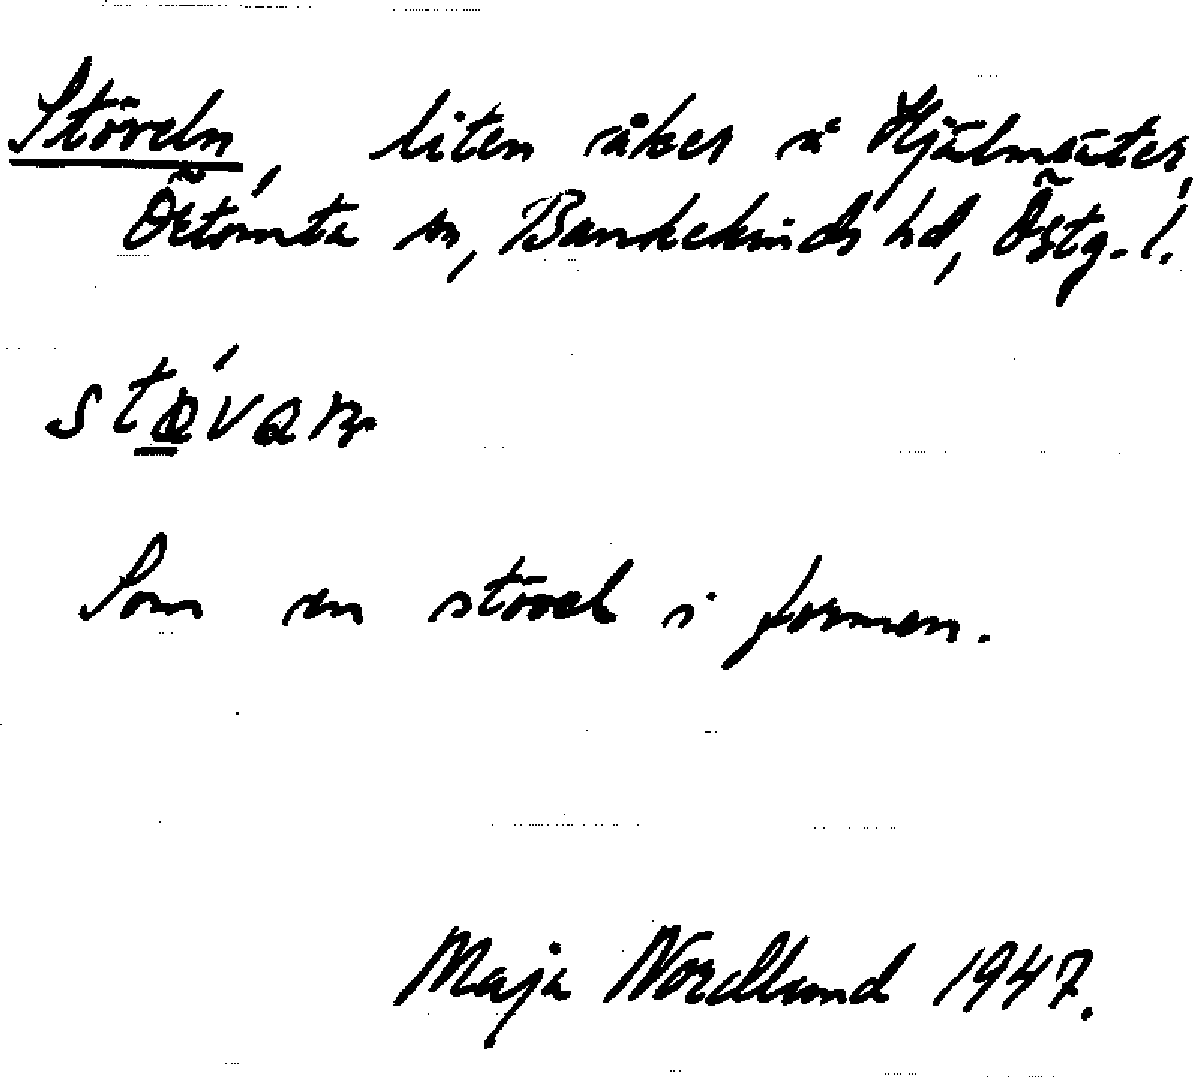 Stöveln, liten åker å Hjälmsäter,
Örtomta sn, Bankekinds hd, Östg. l.
Som en stövel i formen.
Maja Nordlund 1947.